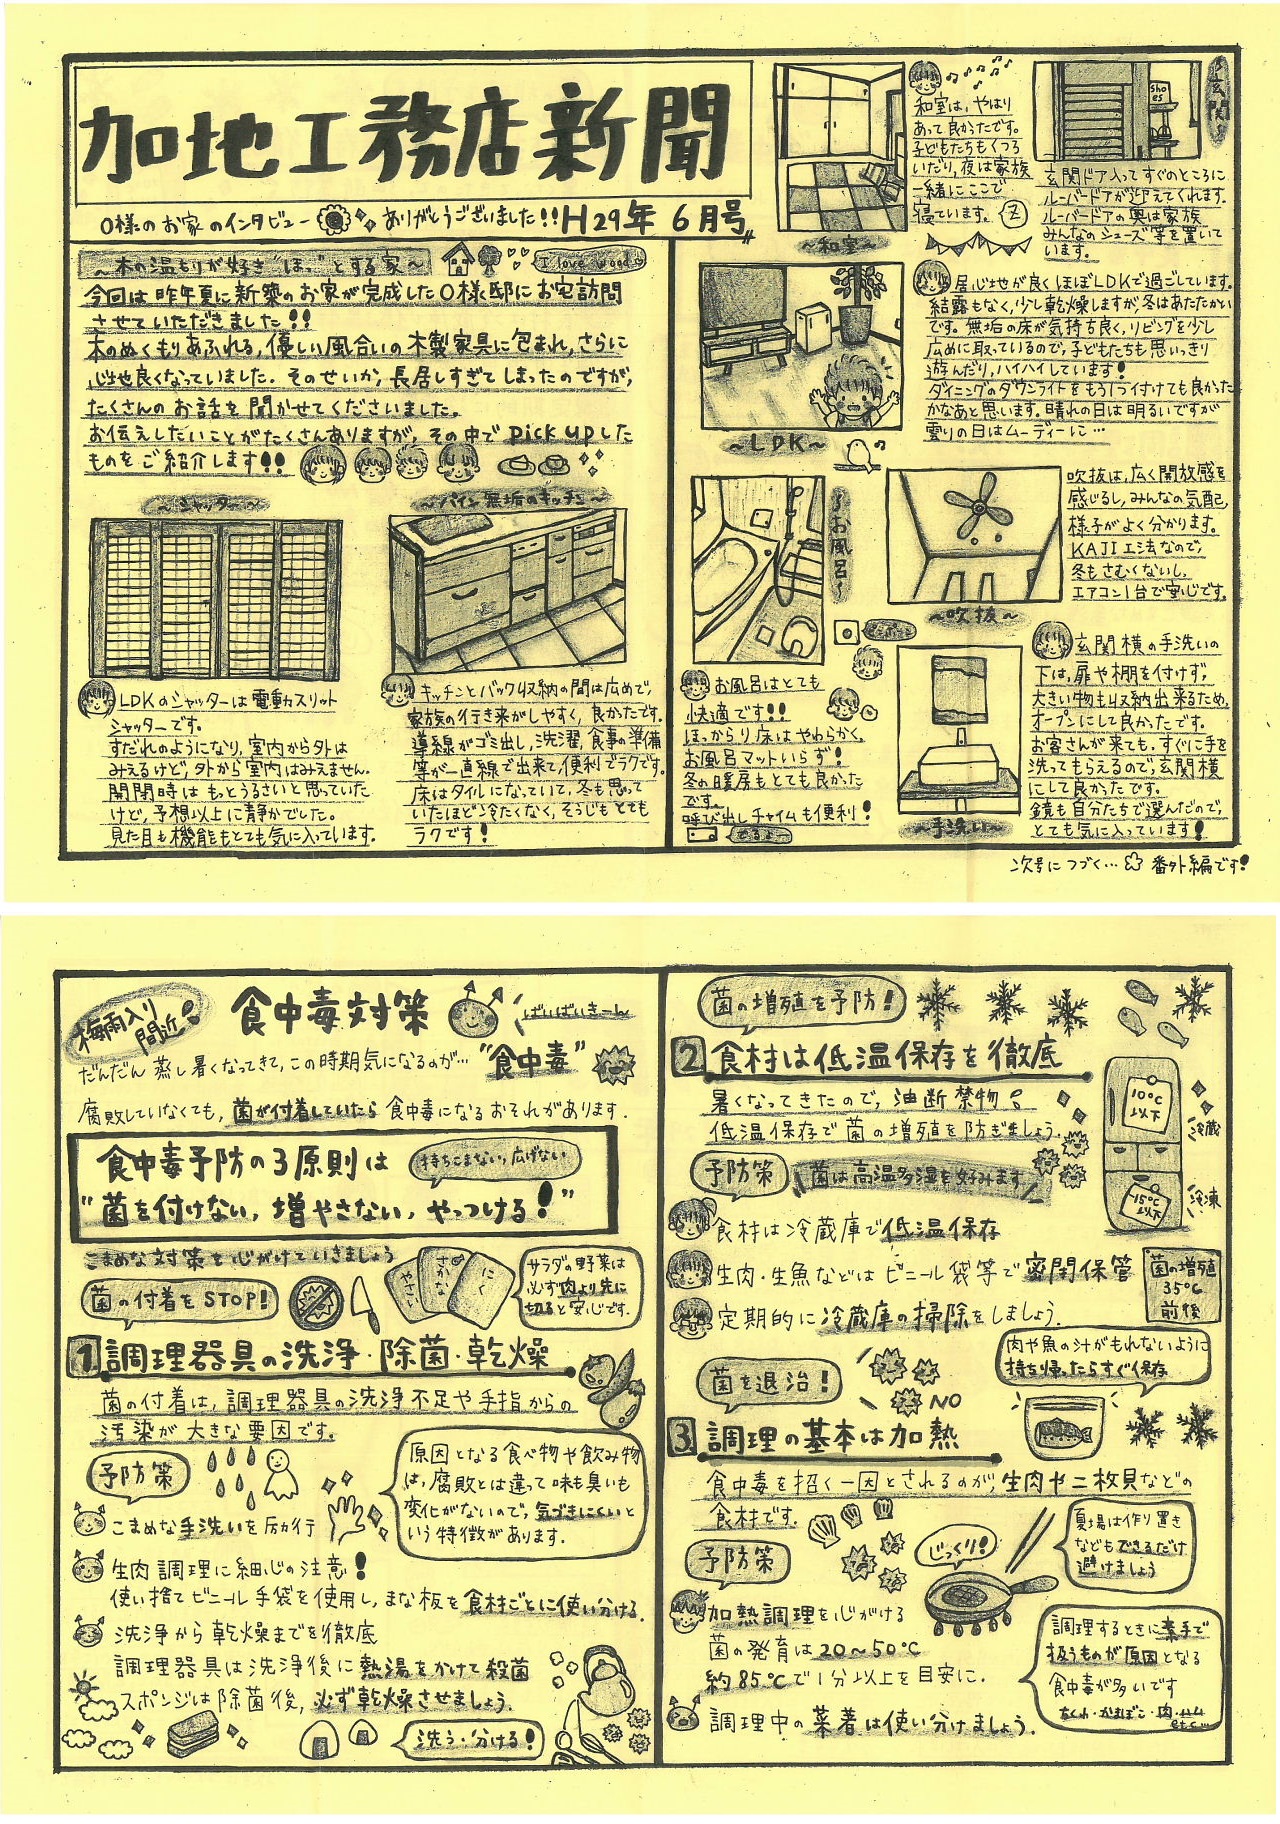 加地工務店新聞
O様のお家のインタビュー ありがとうございました!! H29年 6月号
〜木の温もりが好き"ほっ"とする家〜
I love wood
今回は昨年夏に新築のお家が完成したO様邸にお宅訪問
させていただきました!!
木のぬくもりあふれる,優しい風合いの木製家具に包まれ,さらに
心地良くなっていました。そのせいか,長居しすぎてしまったのですが,
たくさんのお話を聞かせてくださいました。
お伝えしたいことがたくさんありますが,その中でpick upした
ものをご紹介します!!
〜シャッター〜
LDKのシャッターは電動スリット
シャッターです。
すだれのようになり,室内から外は
みえるけど,外から室内はみえません。
開閉時はもっとうるさいと思っていた
けど,予想以上に静かでした。
見た目も機能もとても気に入っています。
〜パイン無垢のキッチン〜
キッチンとバック収納の間は広めで,
家族の行き来がしやすく,良かったです。
導線がゴミ出し,洗濯,食事の準備
等が一直線で出来て,便利でラクです。
床はタイルになっていて,冬も思って
いたほど冷たくなく,そうじもとても
ラクです!
〜和室〜
和室は,やはり
あって良かったです。
子どもたちもくつろ
いだり,夜は家族
一緒にここで
寝ています。
Z
〜玄関〜
Sho
es
玄関ドア入ってすぐのところに
ルーバードアが迎えてくれます。
ルーバードアの奥は家族
みんなのシューズ等を置いて
います。
〜LDK〜
居心地が良くほぼLDKで過ごしています。
結露もなく,少し乾燥しますが,冬はあたたかい
です。無垢の床が気持ち良く,リビングを少し
広めに取っているので,子どもたちも思いっきり
遊んだり,ハイハイしています!
ダイニングのダウンライトをもう1つ付けても良かった
かなあと思います。晴れの日は明るいですが
曇りの日はムーディーに…
〜お風呂〜
お風呂はとても
快適です!!
ほっからり床はやわらかく。
お風呂マットいらず!
冬の暖房もとても良かった
です。
呼び出しチャイムも便利!
〜吹抜〜
吹抜は,広く開放感を
感じるし,みんなの気配,
様子がよく分かります。
KAJI工法なので,
冬もさむくないし,
エアコン1台で安心です。
〜手洗い〜
玄関横の手洗いの
下は,扉や棚を付けず,
大きい物も収納出来るため,
オープンにして良かったです。
お客さんが来ても,すぐに手を
洗ってもらえるので,玄関横
にして良かったです。
鏡も自分たちで選んだので,
とても気に入っています!
次号につづく… 番外編です!
梅雨入り
間近!
食中毒対策
ばいばいきーん
だんだん蒸し暑くなってきて,この時期気になるのが… "食中毒"
腐敗していなくても,菌が付着していたら食中毒になるおそれがあります.
食中毒予防の3原則は
持ちこまない,広げない
"菌を付けない,増やさない,やっつける!"
こまめな対策を心がけていきましょう
菌の付着をSTOP!
やさい
さかな
にく
サラダの野菜は
必ず肉より先に
切ると安心です。
1 調理器具の洗浄・除菌・乾燥
菌の付着は,調理器具の洗浄不足や手指からの
汚染が大きな要因です。
予防策
こまめな手洗いを励行
原因となる食べ物や飲み物
は,腐敗とは違って味も臭いも
変化がないので,気づきにくいと
いう特徴があります.
生肉調理に細心の注意!
使い捨てビニール手袋を使用し,まな板を食材ごとに使い分ける.
洗浄から乾燥までを徹底
調理器具は洗浄後に熱湯をかけて殺菌
スポンジは除菌後,必ず乾燥させましょう。
洗う・分ける!
菌の増殖を予防!
2 食材は低温保存を徹底
暑くなってきたので,油断禁物!
低温保存で菌の増殖を防ぎましょう.
予防策
菌は高温多湿を好みます
10℃
以下
冷蔵
15℃
以下
冷凍
食材は冷蔵庫で低温保存
生肉・生魚などはビニール袋等で密閉保管
定期的に冷蔵庫の掃除をしましょう.
菌の増殖
35℃
前後
肉や魚の汁がもれないように
持ち帰ったらすぐ保存
菌を退治!
NO
3 調理の基本は加熱
食中毒を招く一因とされるのが,生肉や二枚貝などの
食材です.
予防策
じっくり!
夏場は作り置き
などもできるだけ
避けましょう
加熱調理を心がける
菌の発育は20〜50℃
約85℃で1分以上を目安に.
調理中の菜箸は使い分けましょう.
調理するときに素手で
扱うものが原因となる
食中毒が多いです
ちくわ・かまぼこ・肉・ハム
etc…